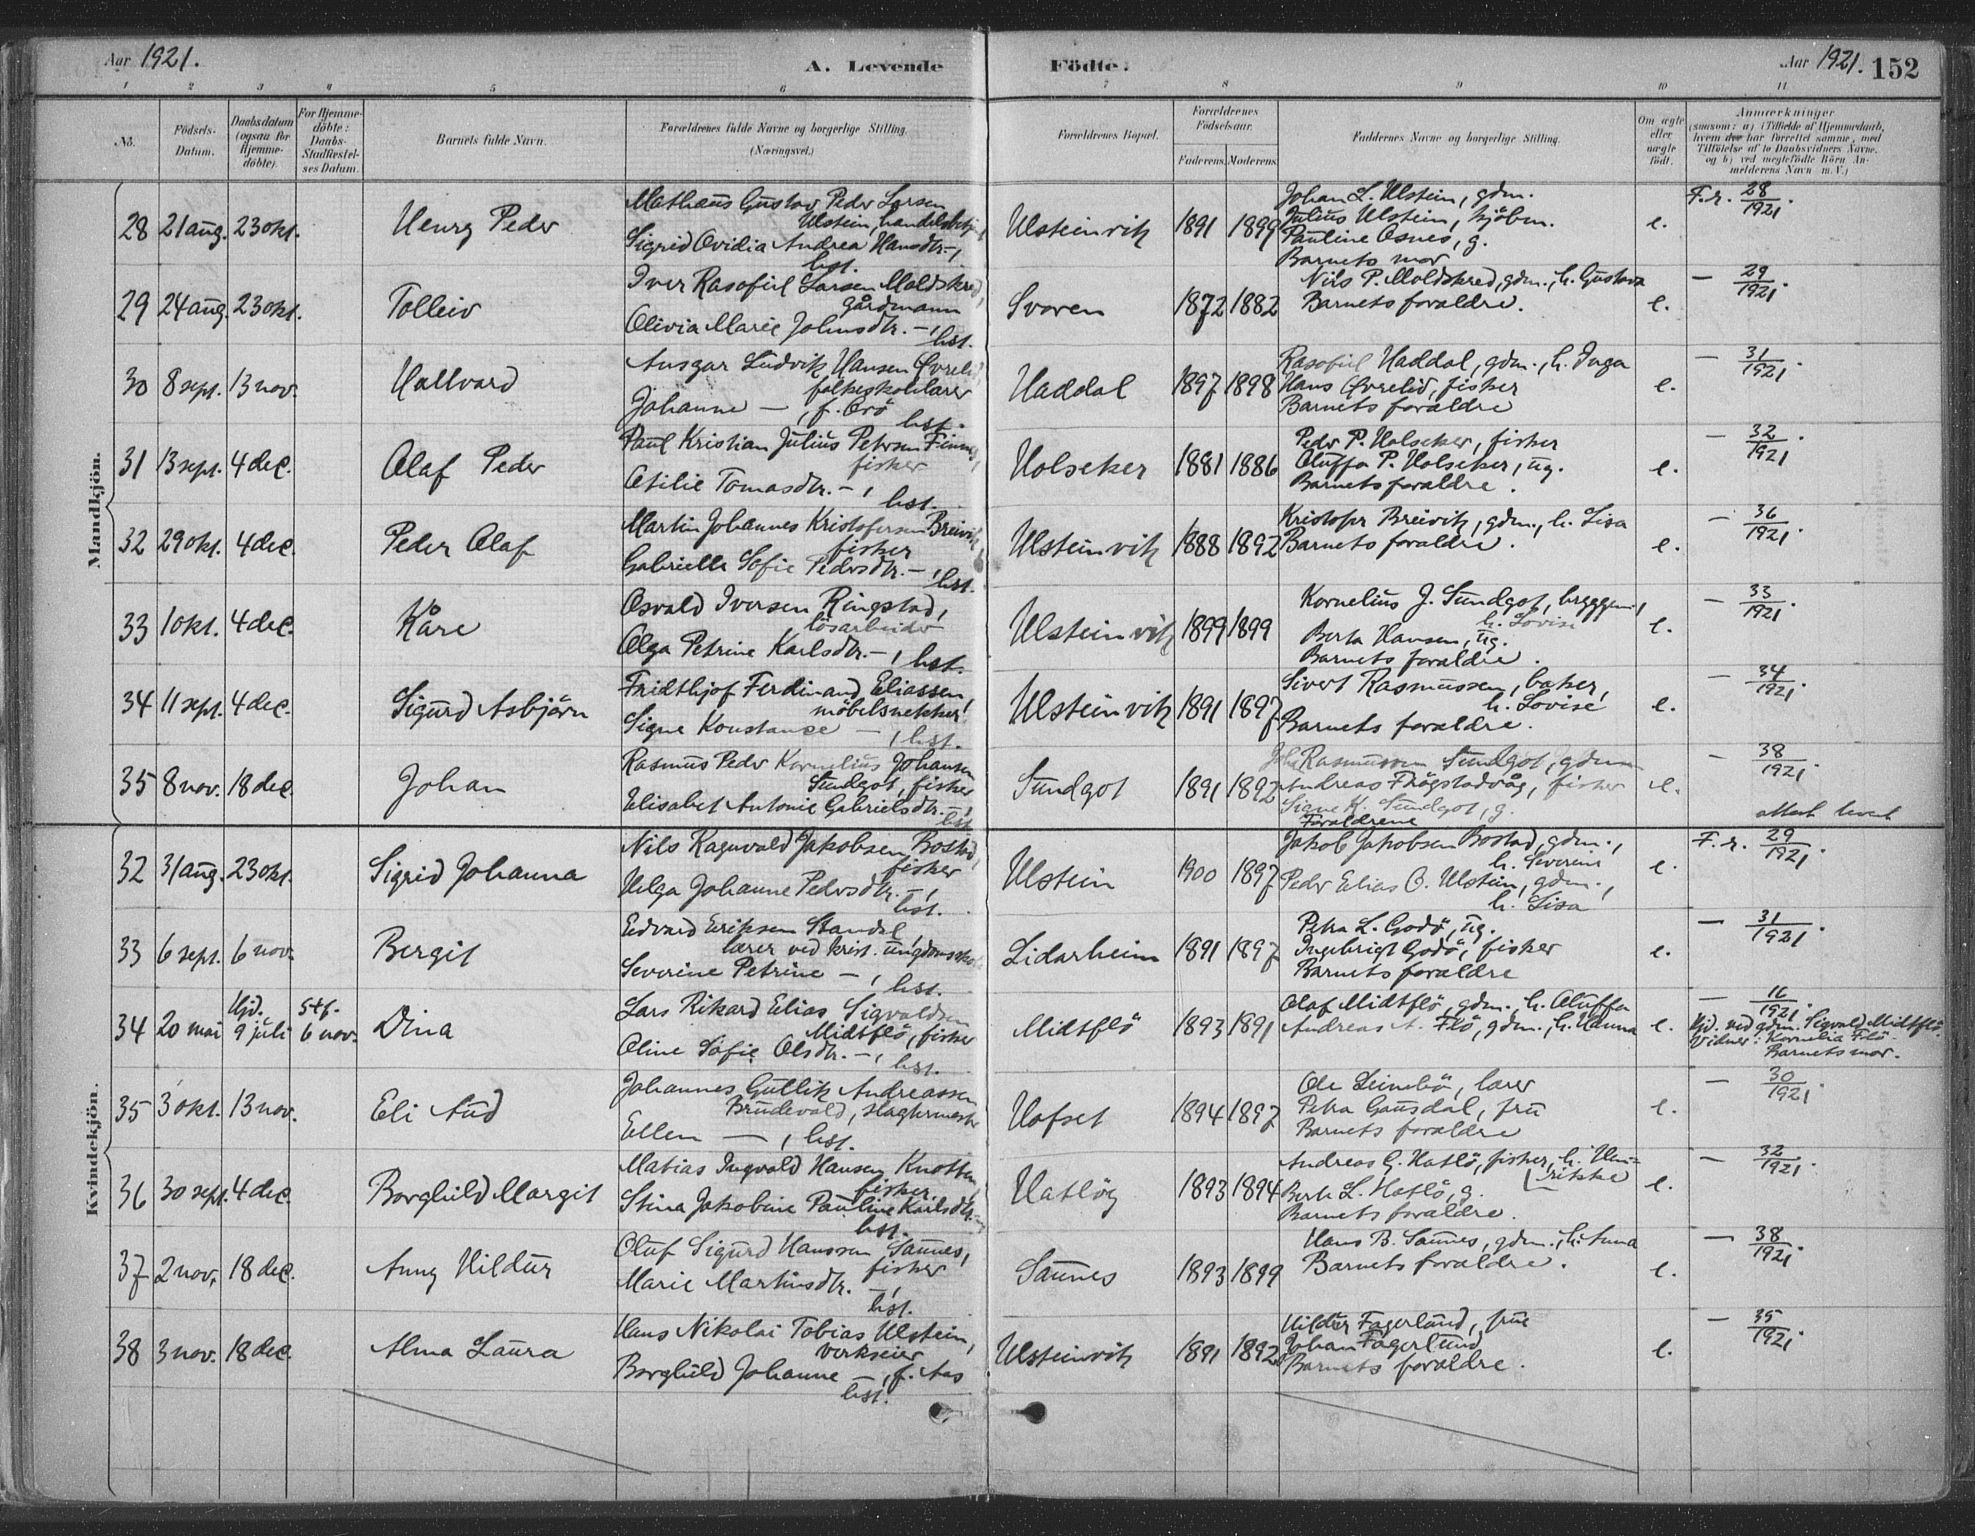 Aar 1921. A. Levende Födte. Aar 1921. 152
1 2 3 4 5 6 7 8 9 10 11
No. Födsels-Datum. Daabsdatum (ogsaa for Hjemme-döbte). For Hjemme-döbte: Daabs-Stadfæstel-ses Datum. Barnets fulde Navn. Forældrenes fulde Navne og borgerlige Stilling. (Næringsvei.) Forældrenes Bopæl. Forældrenes Födselsaar. Faderens. Moderens. Faddernes Navne og borgerlige Stilling. Om ægte eller uægte födt. Anmærkninger
Mandkjön.
28 21 aug. 23 okt. Henry Peder
Mathæus Gustav Peder Larsen
Ulstein, handelsbetj.,
Sigrid Ovidia Andrea Hansdtr. –,
hst.
Ulsteinvik 1891 1899
Johan L. Ulstein, gdm.
Julius Ulstein, kjöbm.
Pauline Osnes, g.
Barnets mor
e. F.r. 28/1921.
29 24 aug. 23 okt. Tolleiv
Iver Rasofiel Larsen Moldskred,
gårdmann
Olivia Marie Johnsdtr. –,
hst.
Svoren 1872 1882
Nils P. Moldskred, gdm., h. Gustava
Barnets forældre.
e. – 29/1921.
30 8 sept. 13 nov. Hallvard
Ansgar Ludvik Hansen Övrelid,
folkeskolelærer
Johanne –, f. Orö
hst.
Haddal 1897 1898
Rasofiel Haddal, gdm., h. Inga
Hans Övrelid, fisker
Barnets forældre
e. – 31/1921.
31 13 sept. 4 dec. Olaf Peder
Paul Kristian Julius Petersen Finnes,
fisker
Otilie Tomasdtr. –,
hst.
Holseker 1881 1886
Peder P. Holseker, fisker
Oluffa P. Holseker, ug.
Barnets forældre.
e. – 32/1921.
32 29 okt. 4 dec. Peder Olaf
Martin Johannes Kristofersen Breivik,
fisker
Gabrielle Sofie Pedersdtr. –,
hst.
Ulsteinvik 1888 1892
Kristofer Breivik, gdm., h. Lisa
Barnets forældre.
e. – 36/1921.
33 1 okt. 4 dec. Kåre
Osvald Iversen Ringstad,
lösarbeider
Olga Petrine Karlsdtr. –, hst.
Ulsteinvik 1899 1899
Kornelius J. Sundgot, bryggem.,
h. Lovise
Berta Hansen, ug.
Barnets forældre.
e. – 33/1921.
34 11 sept. 4 dec. Sigurd Asbjörn
Fridthjof Ferdinand Eliassen,
möbelsnekker
Signe Konstanse –, hst.
Ulsteinvik 1891 1897
Sivert Rasmussen, baker,
h. Lovise
Barnets forældre.
e. – 34/1921.
35 8 nov. 18 dec. Johan
Rasmus Peder Kornelius Johansen
Sundgot, fisker
Elisabet Antonie Gabrielsdtr. –,
hst
Sundgot 1891 1892
Rasmussen Sundgot, gdm
Andreas Flögstadvåg, fisker
Signe K. Sundgot, g.
Forældrene
e. – 38/1921.
attest levert
Kvindekjön.
32 31 aug. 23 okt. Sigrid Johanna
Nils Ragnvald Jakobsen Bostad,
fisker
Helga Johanne Pedersdtr. –,
hst.
Ulstein 1900 1897
Jakob Jakobsen Bostad, gdm.,
h. Severine
Peder Elias O. Ulstein, gdm.,
h. Lisa
e. F.r. 29/1921.
33 6 sept. 6 nov. Bergit
Edvard Eriksen Standal,
lærer ved krist. ungdomsskole
Severine Petrine –, hst.
Lidarheim 1891 1897
Petra L. Godö, ug.
Ingebrigt Godö, fisker
Barnets forældre
e. – 31/1921.
34 20 mai Hjd. 9 juli Stf. 6 nov. Dina
Lars Rikard Elias Sigvaldsen
Midtflö, fisker
Oline Sofie Olsdtr. –,
hst.
Midtflö 1893 1891
Olaf Midtflö, gdm., h. Oluffa
Andreas A. Flö, gdm., h. Hanna
e. – 16/1921.
Hjd. ved gdm. Sigvald Midtflö.
Vidner: Kornelia Flö
Barnets mor.
35 3 okt. 13 nov. Eli Aud
Johannes Gutlik Andreassen
Brudevold, slagtermester
Ellen –, hst.
Hofset 1894 1897
Ole Leinebö, lærer
Petra Gausdal, frue
Barnets forældre
e. – 30/1921.
36 30 sept. 4 dec. Borghild Margit
Matias Ingvald Hansen Knotten,
fisker.
Stina Jakobine Pauline Karlsdtr.
hst.
Hatlöy 1893 1894
Andreas G. Hatlö, fisker, h. Hen-
rikke
Berta L. Hatlö, g.
Barnets forældre.
e. – 32/1921.
37 2 nov. 18 dec. Anny Hildur
Oluf Sigurd Hanssen Saunes,
fisker
Marie Martinsdtr. –,
hst.
Saunes 1893 1899
Hans B. Saunes, gdm., h. Anna
Barnets forældre.
e. – 38/1921.
38 3 nov. 18 dec. Alma Laura
Hans Nikolai Tobias Ulstein,
verkseier
Borghild Johanne –, f. Aas
hst.
Ulsteinvik 1891 1892
Hildur Fagerlund, frue
Johan Fagerlund
Barnets forældre.
e. – 35/1921.